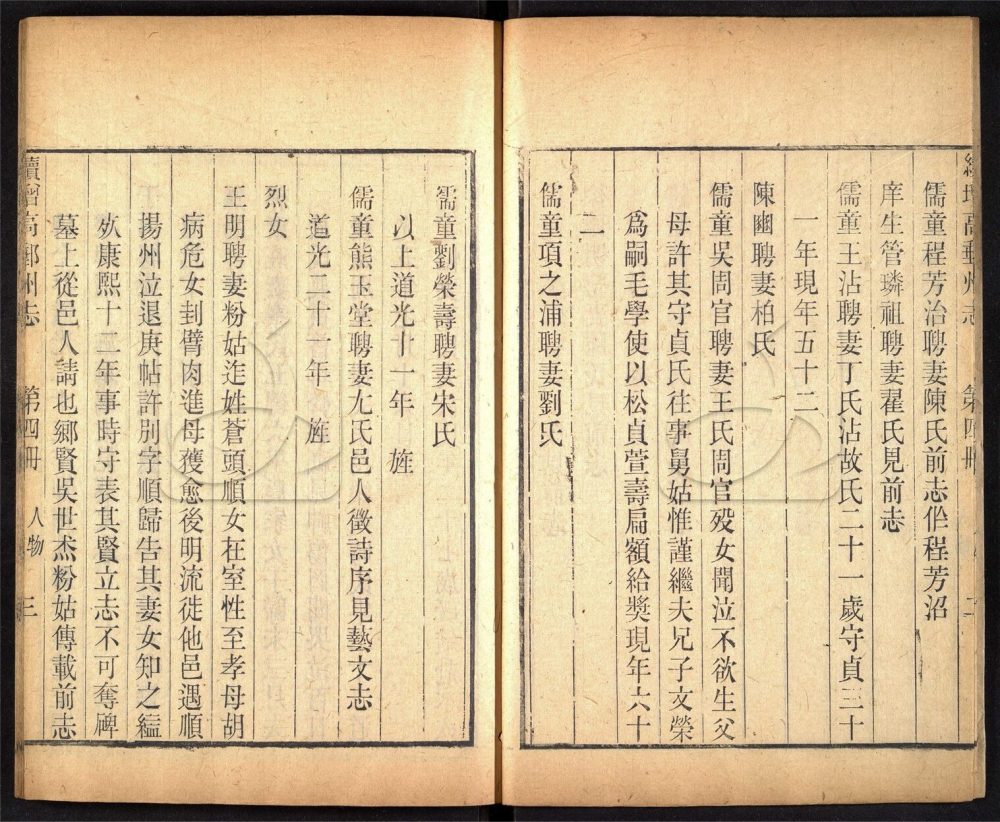 續增高郵州志　第四冊　二
儒童程芳治聘妻陳氏前志作程芳沼
庠生管璘祖聘妻翟氏見前志
儒童王沾聘妻丁氏沾故氏二十一歲守貞三十
一年現年五十二
陳豳聘妻柏氏
儒童吳周官聘妻王氏周官歿女聞泣不欲生父
母許其守貞氏往事舅姑惟謹繼夫兄子文榮
爲嗣毛學使以松貞萱壽扁額給獎現年六十
二
儒童項之浦聘妻劉氏
儒童劉榮壽聘妻宋氏
以上道光十一年　旌
儒童熊玉堂聘妻尢氏邑人徵詩序見藝文志
道光二十一年　旌
烈女
王明聘妻粉姑迮姓蒼頭順女在室性至孝母胡
病危女刲臂肉進母獲愈後明流徙他邑遇順
揚州泣退庚帖許別字順歸告其妻女知之縊
㱙康熙十二年事時守表其賢立志不可奪碑
墓上從邑人請也鄉賢吳世杰粉姑傳載前志
續增高郵州志　第四冊　人物　三